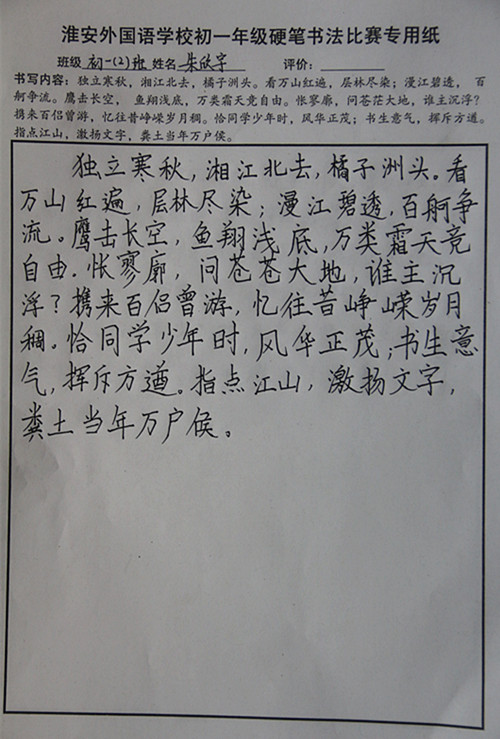 淮安外国语学校初一年级硬笔书法比赛专用纸
班级 初一(2)班 姓名 朱欣宇 评价:
书写内容：独立寒秋，湘江北去，橘子洲头。看万山红遍，层林尽染；漫江碧透，百
舸争流。鹰击长空，鱼翔浅底，万类霜天竞自由。怅寥廓，问苍茫大地，谁主沉浮？
携来百侣曾游，忆往昔峥嵘岁月稠。恰同学少年时，风华正茂；书生意气，挥斥方遒。
指点江山，激扬文字，粪土当年万户侯。
独立寒秋，湘江北去，橘子洲头。看
万山红遍，层林尽染；漫江碧透，百舸争
流。鹰击长空，鱼翔浅底，万类霜天竞
自由．怅寥廓，问苍苍大地，谁主沉
浮？携来百侣曾游，忆往昔峥嵘岁月
稠。恰同学少年时，风华正茂；书生意
气，挥斥方遒。指点江山，激扬文字，
粪土当年万户候。